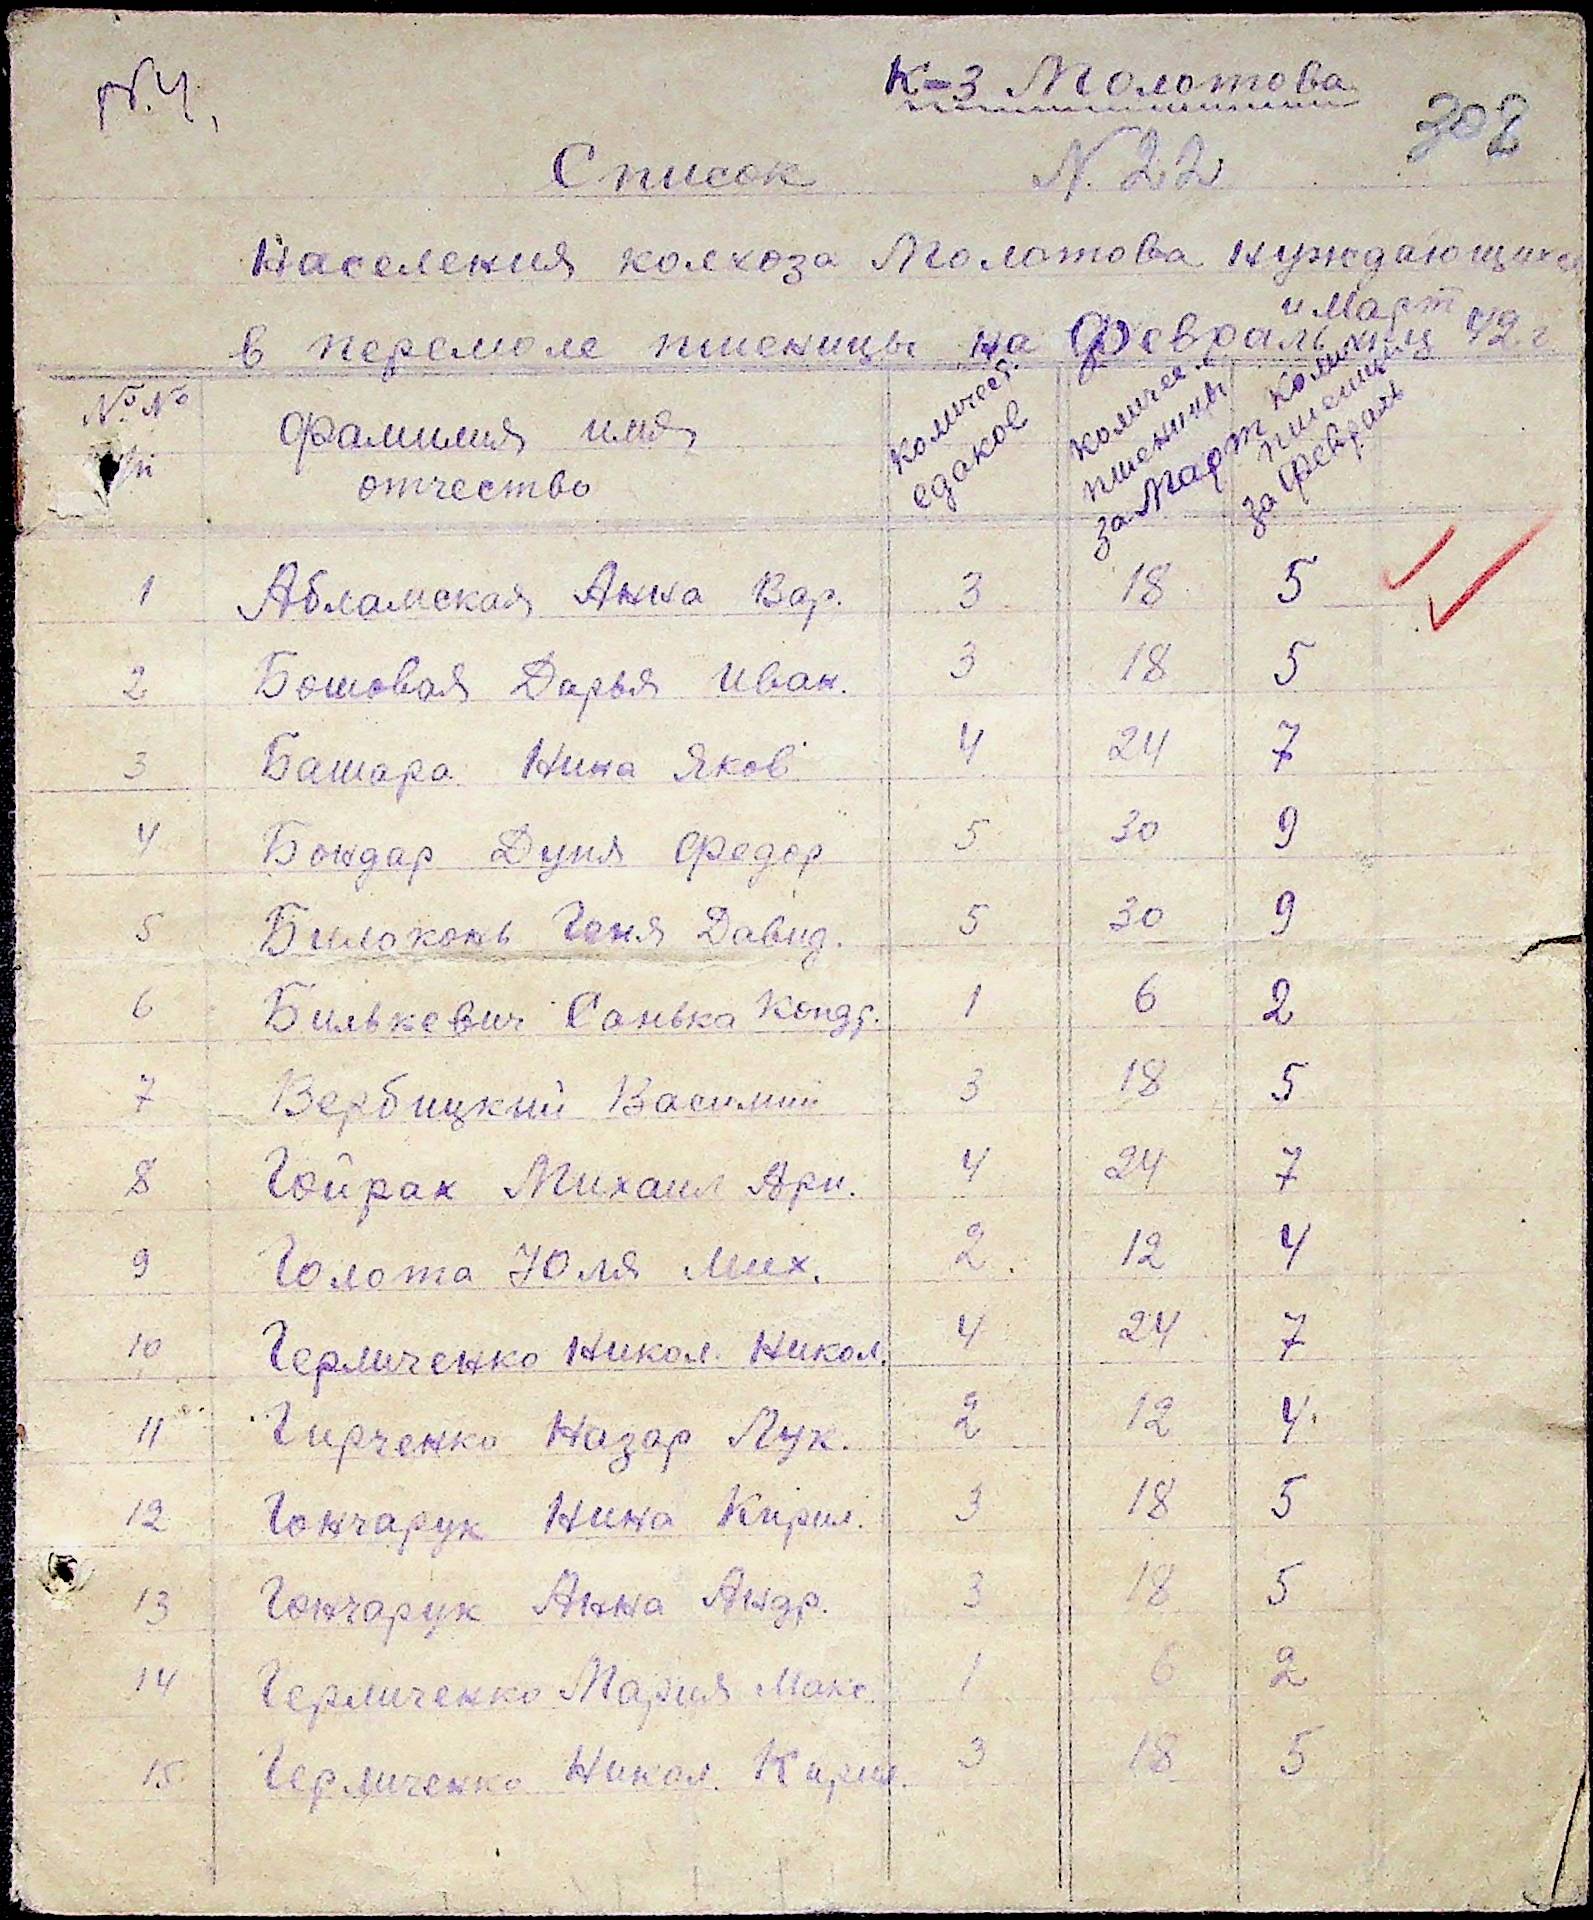 К-з Молотова
308
Список N. 22
Населения колхоза Молотова нуждающихся
и Март
в перемоле пшеницы на Февраль м-ц 42 г
№ № фамилия имя количест. количес. колич.
отчество едаков пшеницы пшеницы
за Март за февраль
1 Абламская Анна Вар. 3 18 5
2 Бошовая Дарья Иван. 3 18 5
3 Башара Нина Яков 4 24 7
4 Бондар Дуня Федор 5 30 9
5 Билоконь Ганя Давид. 5 30 9
6 Билькевич Санька Кондр. 1 6 2
7 Вербицкий Василий 3 18 5
8 Гойрах Михаил Ари. 4 24 7
9 Голота Юля Мих. 2 12 4
10 Герличенко Никол. Никол. 4 24 7
11 Гирченко Назар Лук. 2 12 4
12 Гончарук Нина Кирил. 3 18 5
13 Гончарук Анна Андр. 3 18 5
14 Герличенко Мария Макс. 1 6 2
15 Герличенко Никол. Кирил. 3 18 5